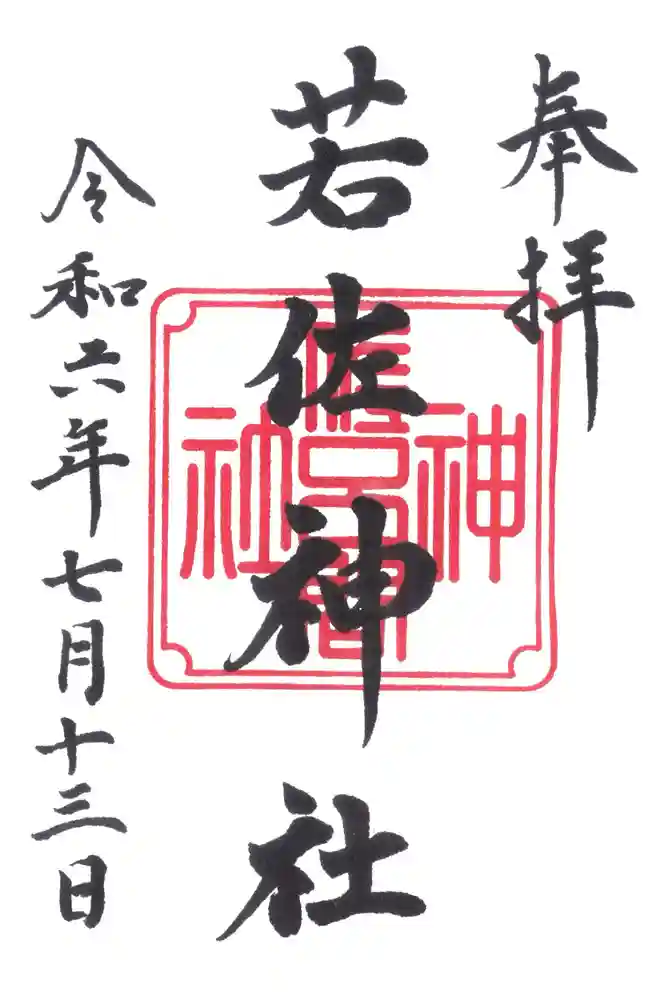 奉拝
若佐神社
令和六年七月十三日
神
社